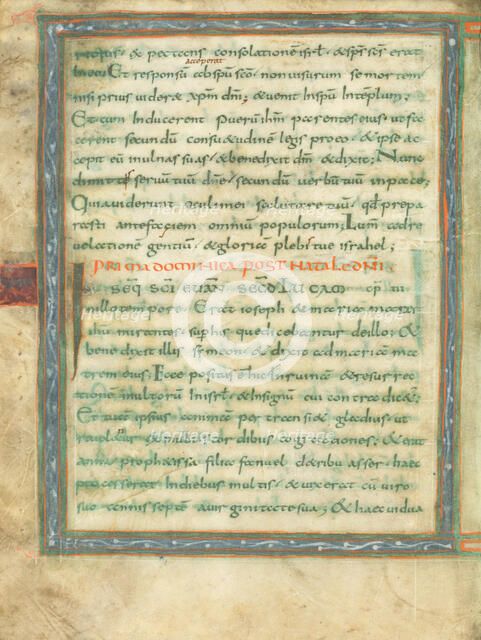 timoratus · & expectans consolationem isrl̄ · & sp̄s sc̄s erat
accoperat
in eo; Et responsū ab sp̄u sc̄o · non visurum se mortem
nisi prius videret xp̄m dn̄i; & venit in sp̄u in templū;
Et cum inducerent puerū ih̄m parentes eius · ut fa
cerent secundū consuetudinē legis pro eo; & ipse ac
cepit eū in ulnas suas · & benedixit dm̄ & dixit; Nunc
dimittis servū tuū dn̄e · secundū verbū tuū in pace;
Quia viderunt oculi mei salutare tuū · qd̄ prepa
rasti ante faciem omniū populorum; Lumen ad re
velationem gentiū · & gloriā plebis tue israhel;
PRIMA DOMINICA POST NATALE DNI ·
SEQ SCI EVAN SECD LVCAM
In illo tempore · Erat ioseph & maria mater
ihū mirantes super his que dicebantur de illo; &
benedixit illis symeon · & dixit ad mariā ma
trem eius; Ecce positus ē hic in ruinā & resurrec
tionē multorū in isrl̄ · & in signū cui contradicetur;
Et tuā ipsius animā pertransiet gladius · ut
revelentur ex multis cordibus cogitationes; & erat
anna prophetissa filia fanuel de tribu aser · haec
processerat in diebus multis · & vixerat cū viro
suo annis septē a virginitate sua; & haec vidua
Heritage
Heritage
Heritage
Heritage